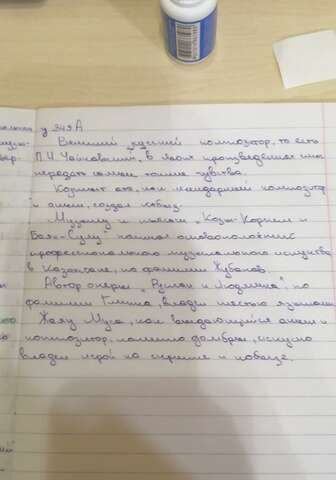 у 349А
Великий русский композитор, то есть
П.И. Чайковский, в своих произведениях смог
передать самые тонкие чувства.
Коркыт ата, как легендарный композитор
и акын, создал кобыз.
Музыку к пьесам „Козы-Корпеш и
Баян-Сулу" написал основоположник
профессионального музыкального искусства
в Казахстане, по фамилии Жубанов.
Автор оперы „Руслан и Людмила", по
фамилии Глинка, владел шестью языками.
Жаяу Муса, как выдающийся акын и
композитор, помимо домбры, искусно
владел игрой на скрипке и кобызе.